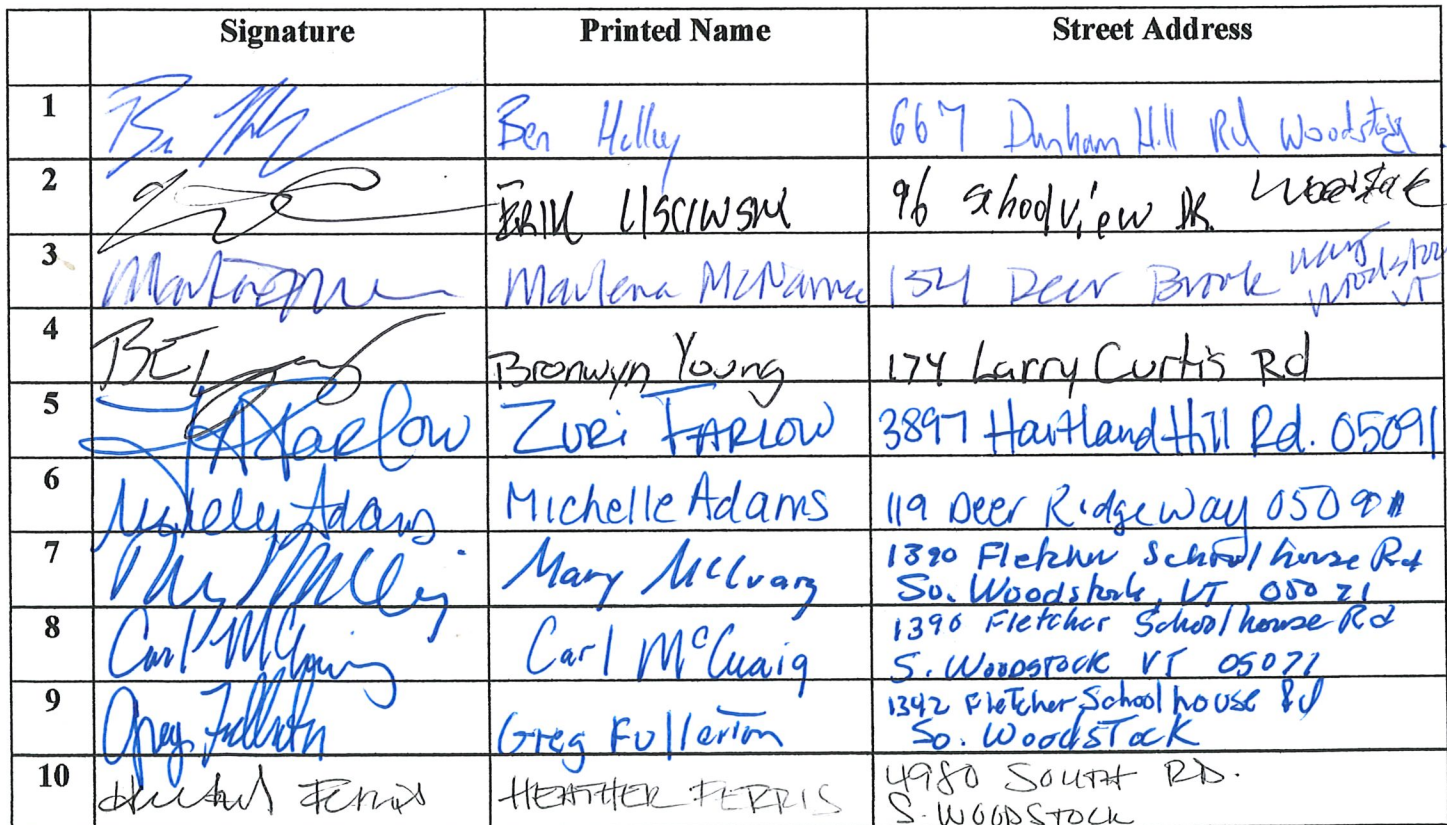 Signature Printed Name Street Address
1 Ben Holley 667 Dunham Hill Rd Woodstock
2 ERIK 96 School View DR. Woodstock
3 Marlena McNamara 154 Deer Brook way Woodstock VT
4 Bronwyn Young 174 Larry Curtis Rd
5 Farlow ZURI FARLOW 3897 Hartland Hill Rd. 05091
6 Adams Michelle Adams 119 Deer Ridge Way 05091
7 Mary 1390 Fletcher Schoolhouse Rd
So. Woodstock, VT 05071
8 Carl McCuaig 1390 Fletcher Schoolhouse Rd
S. WOODSTOCK VT 05071
9 Greg Fullerton 1342 Fletcher Schoolhouse Rd
So. Woodstock
10 Ferris HEATHER FERRIS 4980 SOUTH RD.
S. WOODSTOCK